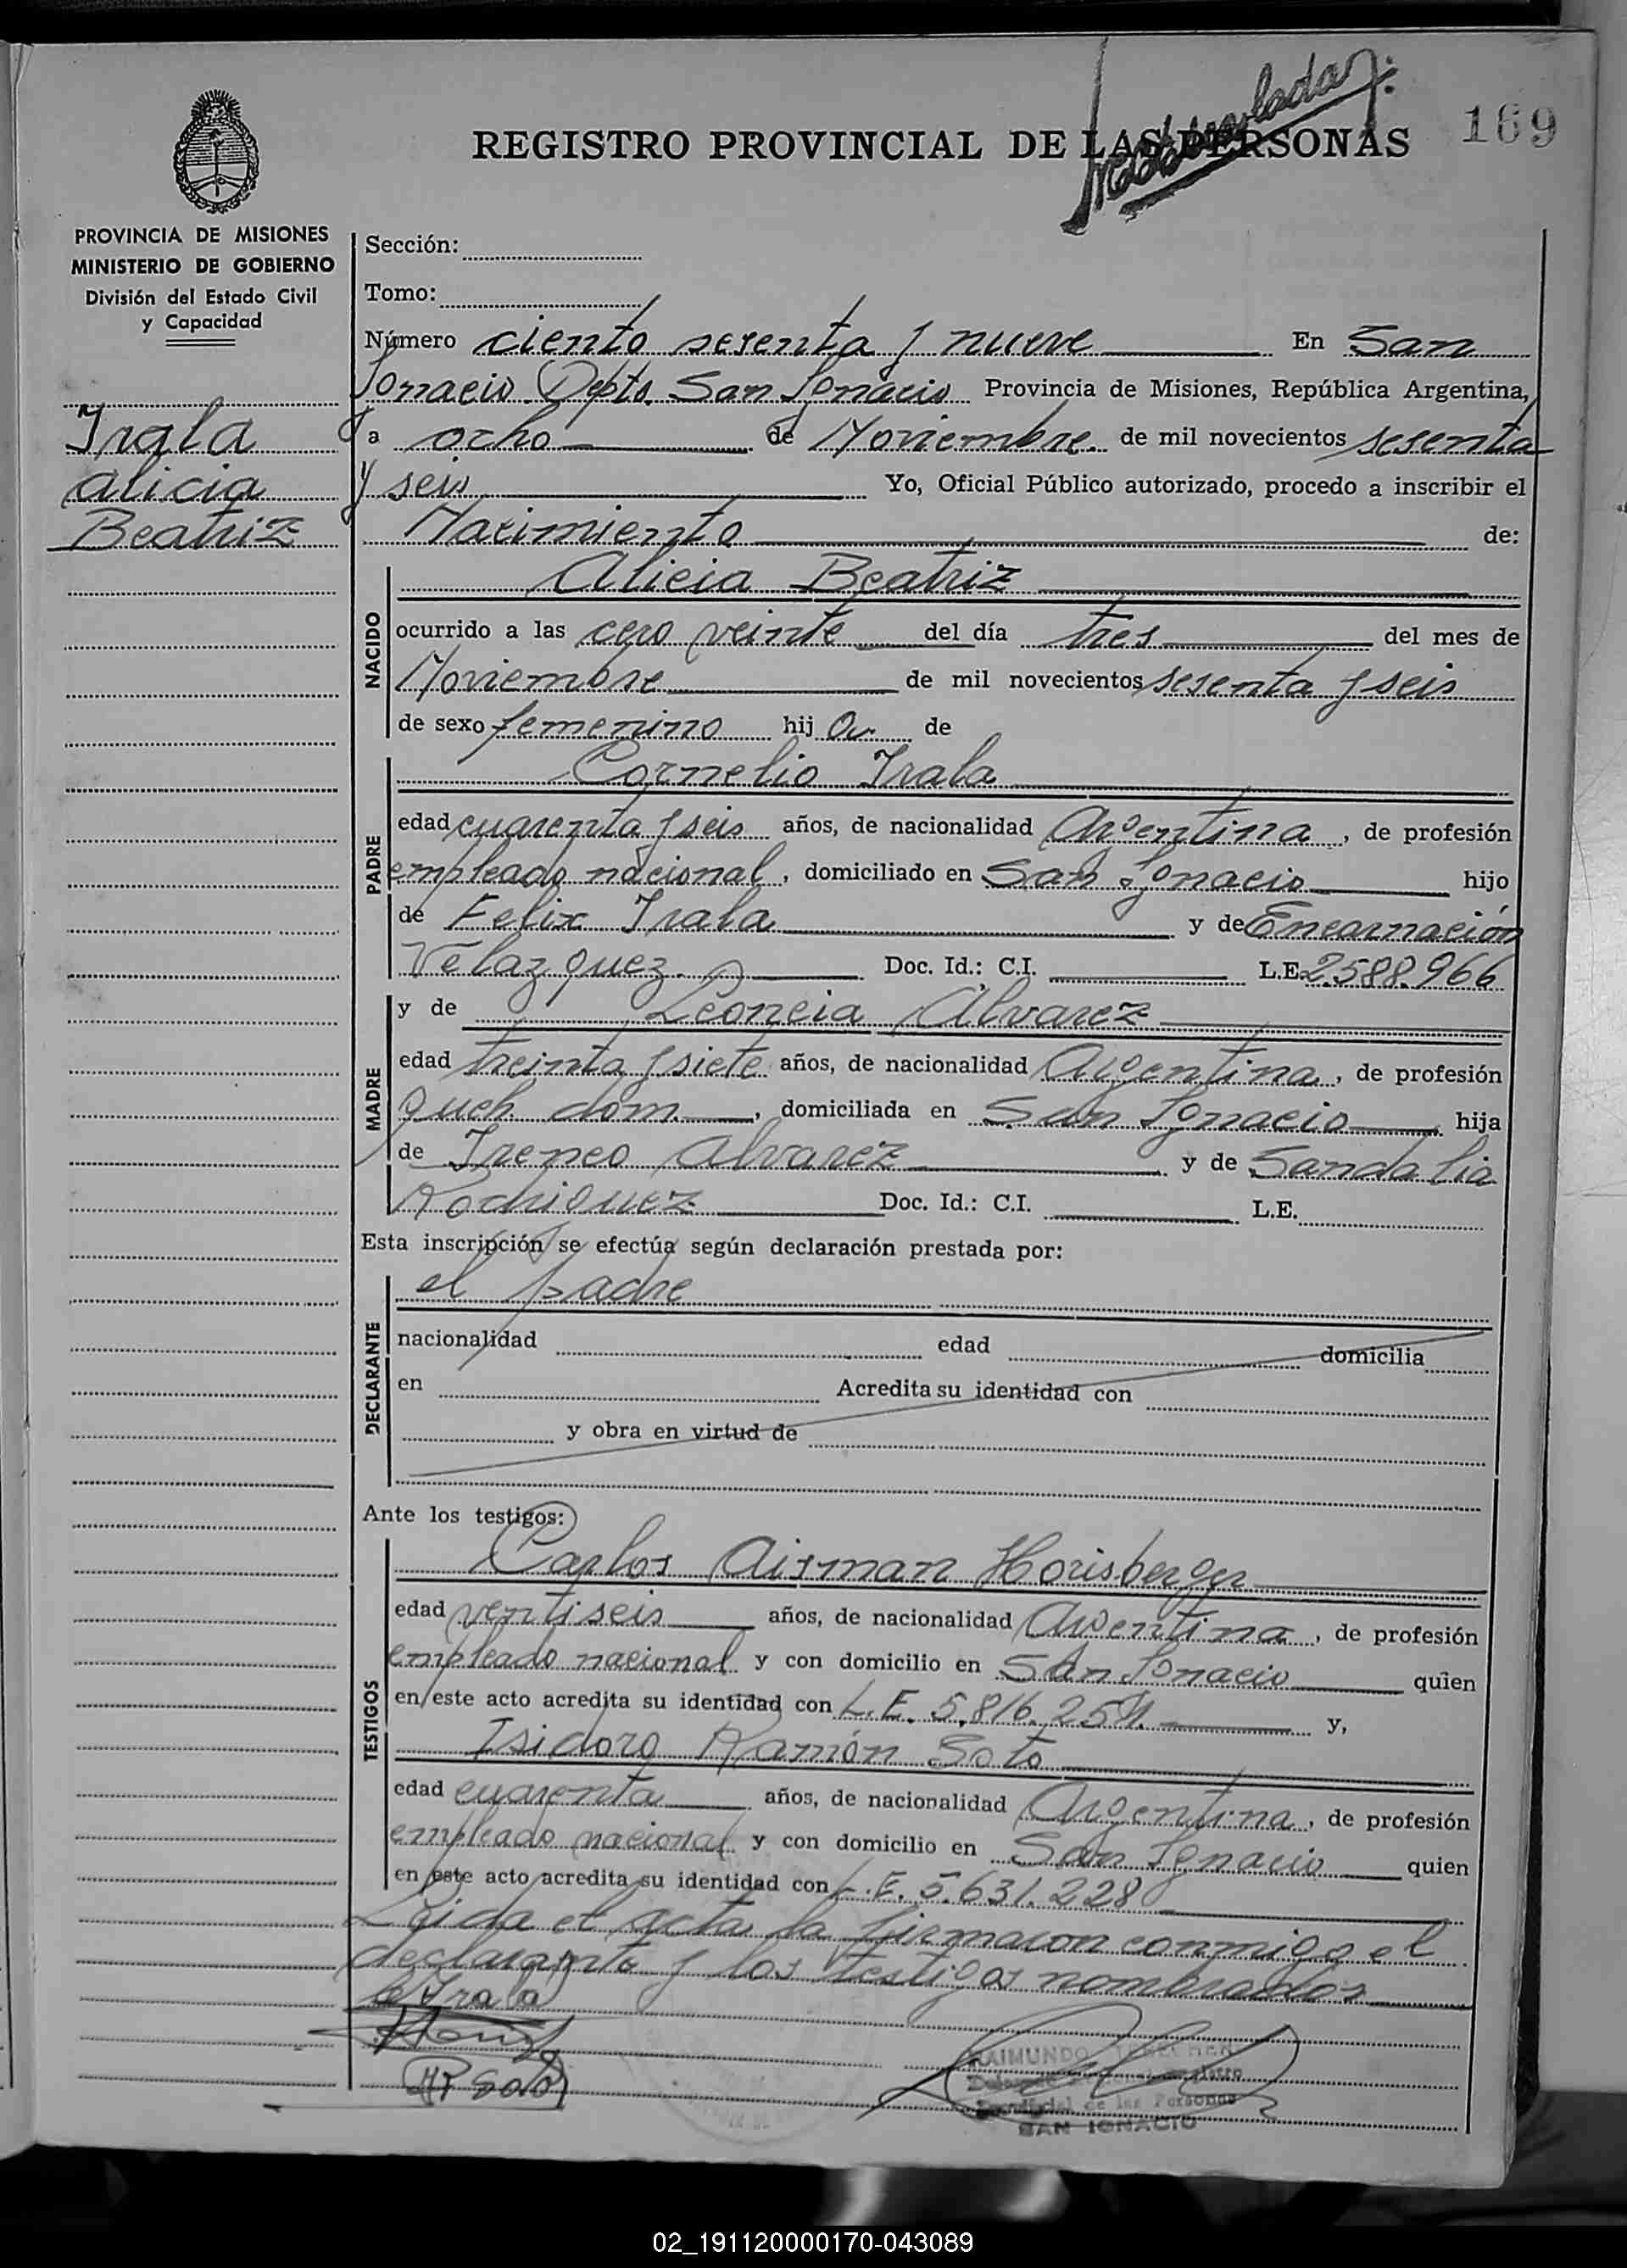 169
REGISTRO PROVINCIAL DE LAS PERSONAS
PROVINCIA DE MISIONES
MINISTERIO DE GOBIERNO
División del Estado Civil
y Capacidad
Irala
Alicia
Beatriz
Sección:
Tomo:
Número ciento sesenta y nueve En San
Ignacio Depto. San Ignacio Provincia de Misiones, República Argentina,
a ocho de Noviembre de mil novecientos sesenta
y seis Yo, Oficial Público autorizado, procedo a inscribir el
Nacimiento de:
NACIDO
Alicia Beatriz
ocurrido a las cero veinte del día tres del mes de
Noviembre de mil novecientos sesenta y seis
de sexo femenino hij a de
PADRE
Cornelio Irala
edad cuarenta y seis años, de nacionalidad Argentina, de profesión
empleado nacional, domiciliado en San Ignacio hijo
de Felix Irala y de Encarnación
Velazquez. Doc. Id.: C.I. L.E. 2.588.966
MADRE
y de Leoncia Alvarez
edad treinta y siete años, de nacionalidad Argentina, de profesión
queh dom., domiciliada en San Ignacio hija
de Ireneo Alvarez y de Sandalia
Rodriguez Doc. Id.: C.I. L.E.
Esta inscripción se efectúa según declaración prestada por:
DECLARANTE
el padre
nacionalidad edad domicilia
en Acredita su identidad con
y obra en virtud de
Ante los testigos:
TESTIGOS
Carlos Aisman Horisberger
edad ventiseis años, de nacionalidad Argentina, de profesión
empleado nacional y con domicilio en San Ignacio quien
en este acto acredita su identidad con L.E. 5.816.254. y,
Isidoro Ramón Soto
edad cuarenta años, de nacionalidad Argentina, de profesión
empleado nacional y con domicilio en San Ignacio quien
en este acto acredita su identidad con L.E. 5.631.228
Leida el acta la firmaron conmigo el
declarante y los testigos nombrados
Irala
Soto
RAIMUNDO
de las Personas
SAN IGNACIO
02_191120000170-043089